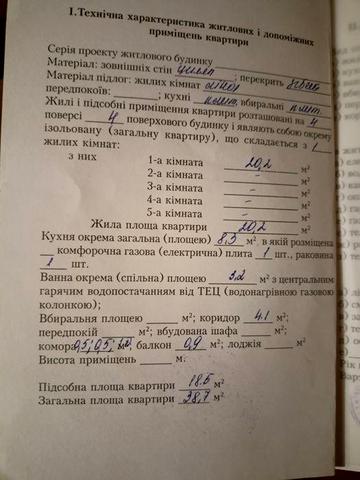 1. Технічна характеристика житлових і допоміжних
приміщень квартири
Серія проекту житлового будинку
Матеріал: зовнішніх стін цегла; перекрить
Матеріал підлог: жилих кімнат
передпокоїв: ; кухні плит. вбиральні плит.
Жилі і підсобні приміщення квартири розташовані на 4
поверсі 4 поверхового будинку і являють собою окрему
ізольовану (загальну квартиру), що складається з 1
жилих кімнат:
з них 1-а кімната 20,2 м²
2-а кімната - м²
3-а кімната - м²
4-а кімната - м²
5-а кімната - м²
Жила площа квартири 20,2 м²
Кухня окрема загальна (площею) 8,5 м², в якій розміщена
комфорочна газова (електрична) плита 1 шт., раковина
1 шт.
Ванна окрема (спільна) площею 3.2 м² з центральним
гарячим водопостачанням від ТЕЦ (водонагрівною газовою
колонкою);
Вбиральня площею м²; коридор 4.1 м²;
передпокій м²; вбудована шафа м²;
комора 0,5; 0,5; м² балкон 0,9 м²; лоджія м²
Висота приміщень м.
Підсобна площа квартири 18.5 м²
Загальна площа квартири 38,7 м²